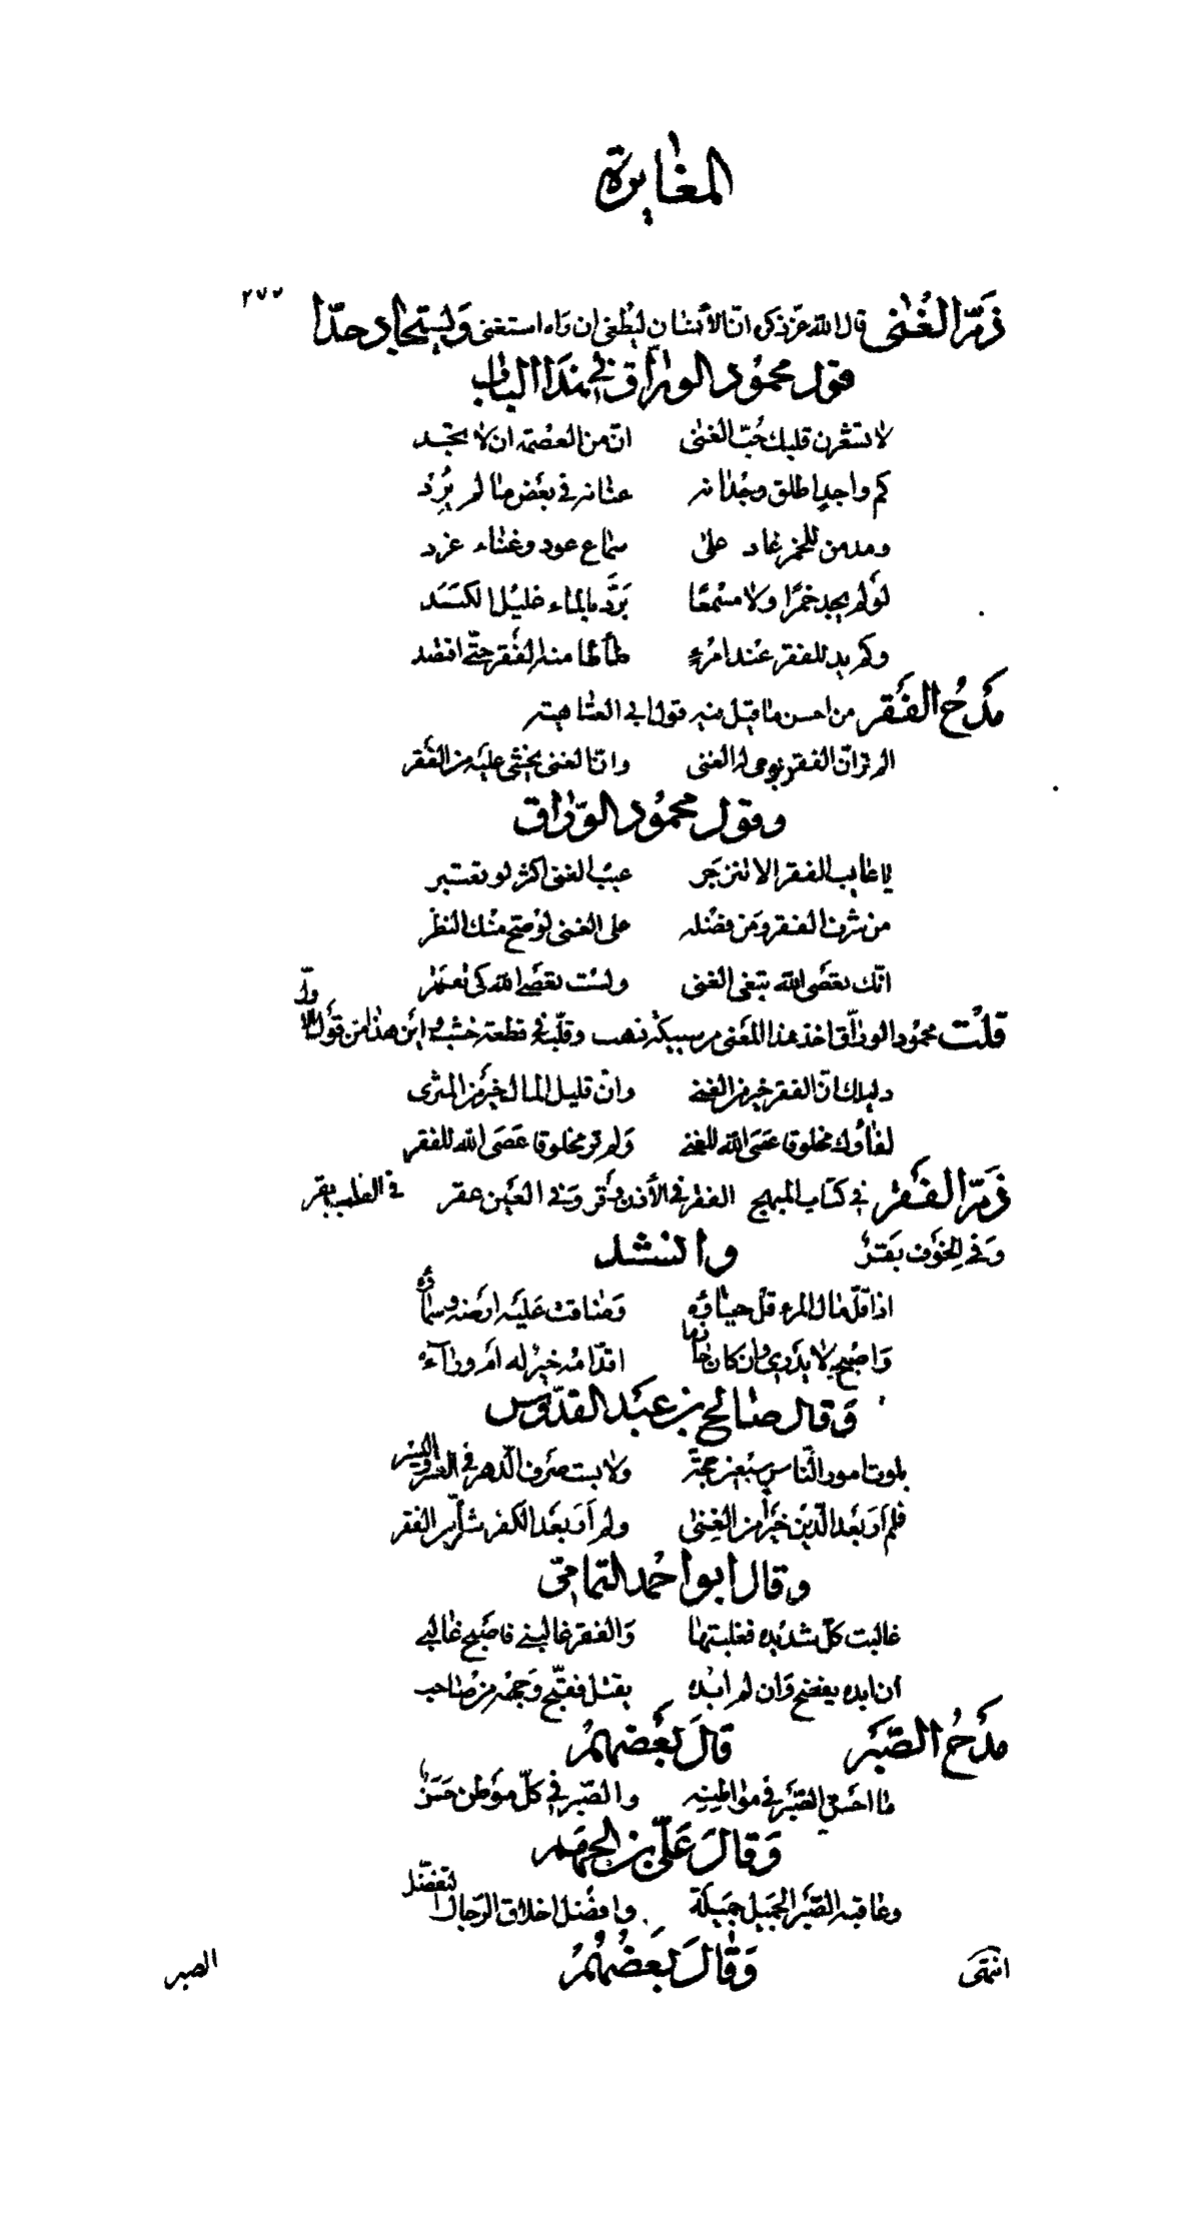 المغايرة
٢٧٧
ذمّ الغنى قال الله عزّ ذكره انّ الأنسان ليطغى ان رآه استغنى ويستجاد جدّا
قول محمود الورّاق في هذا الباب
لا تشعرن قلبك حُبّ الغنى انّ من العصمة ان لا تجد
كم واجدٍ اطلق وجدانه عنانه في بعض ما لم يُرِد
ومدمن للخمر غاد على سماع عود وغناء غرد
لو لم يجد خمرًا ولا مسمعًا برّد بالماء غليل الكبد
وكم يد للفقر عند امرءٍ طأطأ منه الفقر حتّى اقتصد
مدحُ الفقر من احسن ما قيل فيه قول ابى العتاهيته
الم تر انّ الفقر يرجى له الغنى وانّ الغنى يخشى عليه من الفقر
وقول محمود الورّاق
يا عايب الفقر الا تنزجر عيب الغنى اكثر لو تعتبر
من شرف الفقر ومن فضله على الغنى لو صح منك النظر
انّك تعصى الله تبغى الغنى ولست تعصى الله كى تفتقر
قلت محمود الورّاق اخذ هذا المعنى من سبيكة ذهب وقلّبه في قطعة خشب واين هذا من قول الاوّل
دليلك انّ الفقر خير من الغنى وانّ قليل المال خير من المثرى
لقاؤك مخلوقا عصى الله للغنى ولم تر مخلوقا عصى الله للفقر
ذمّ الفقر في كتاب المبهج الفقر في الأذن وقر وفى العين عقر في القلب نقر
وفى الجوف بقر وانشد
اذا قلّ مال المرء قلّ حياؤه وضاقت عليه ارضه وسماؤه
واصبح لا يدرى وان كان حازما اقدّامه خير له ام ورآءه
وقال صالح بن عبد القدّوس
بلوت امور النّاس سبعين حجّة ولابست صرف الدّهر في العسر واليسر
فلم ار بعد الدّين خيرا من الغنى ولم ار بعد الكفر شرّا من الفقر
وقال ابو احمد التمامى
غالبت كلّ شديده فغلبتها والفقر غالبنى فاصبح غالبى
ان ابده يفضح وان لم ابده يقتل فقبّح وجهه من صاحب
مدحُ الصّبر قال بعضهم
ما احسن الصّبر في مواطنه والصّبر في كلّ موطن حسن
وقال علىّ بن الجهم
وعاقبة الصّبر الجميل جميلة وافضل اخلاق الرّجال التفضّل
وقال بعضهم
الصبر